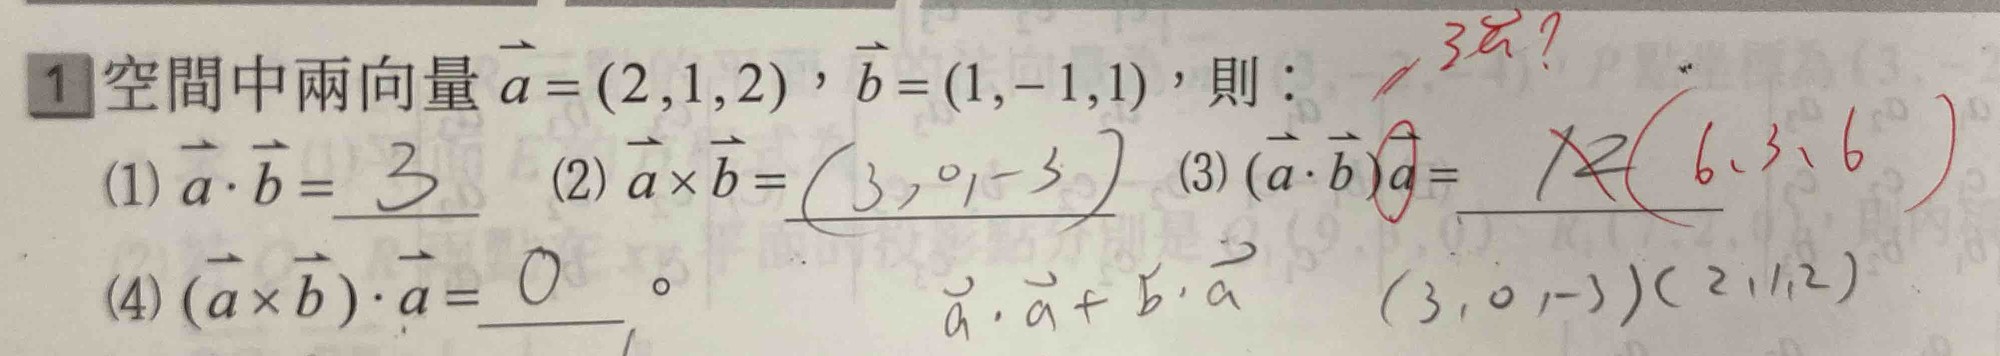 3a⃗?
1 空間中兩向量 a⃗=(2,1,2),b⃗=(1,−1,1),則:
(1) a⃗·b⃗= 3 (2) a⃗×b⃗= (3,0,-3) (3) (a⃗·b⃗)a⃗= 12 (6、3、6)
(4) (a⃗×b⃗)·a⃗= 0 。
a⃗·a⃗+b·a⃗ (3,0,-3)(2,1,2)